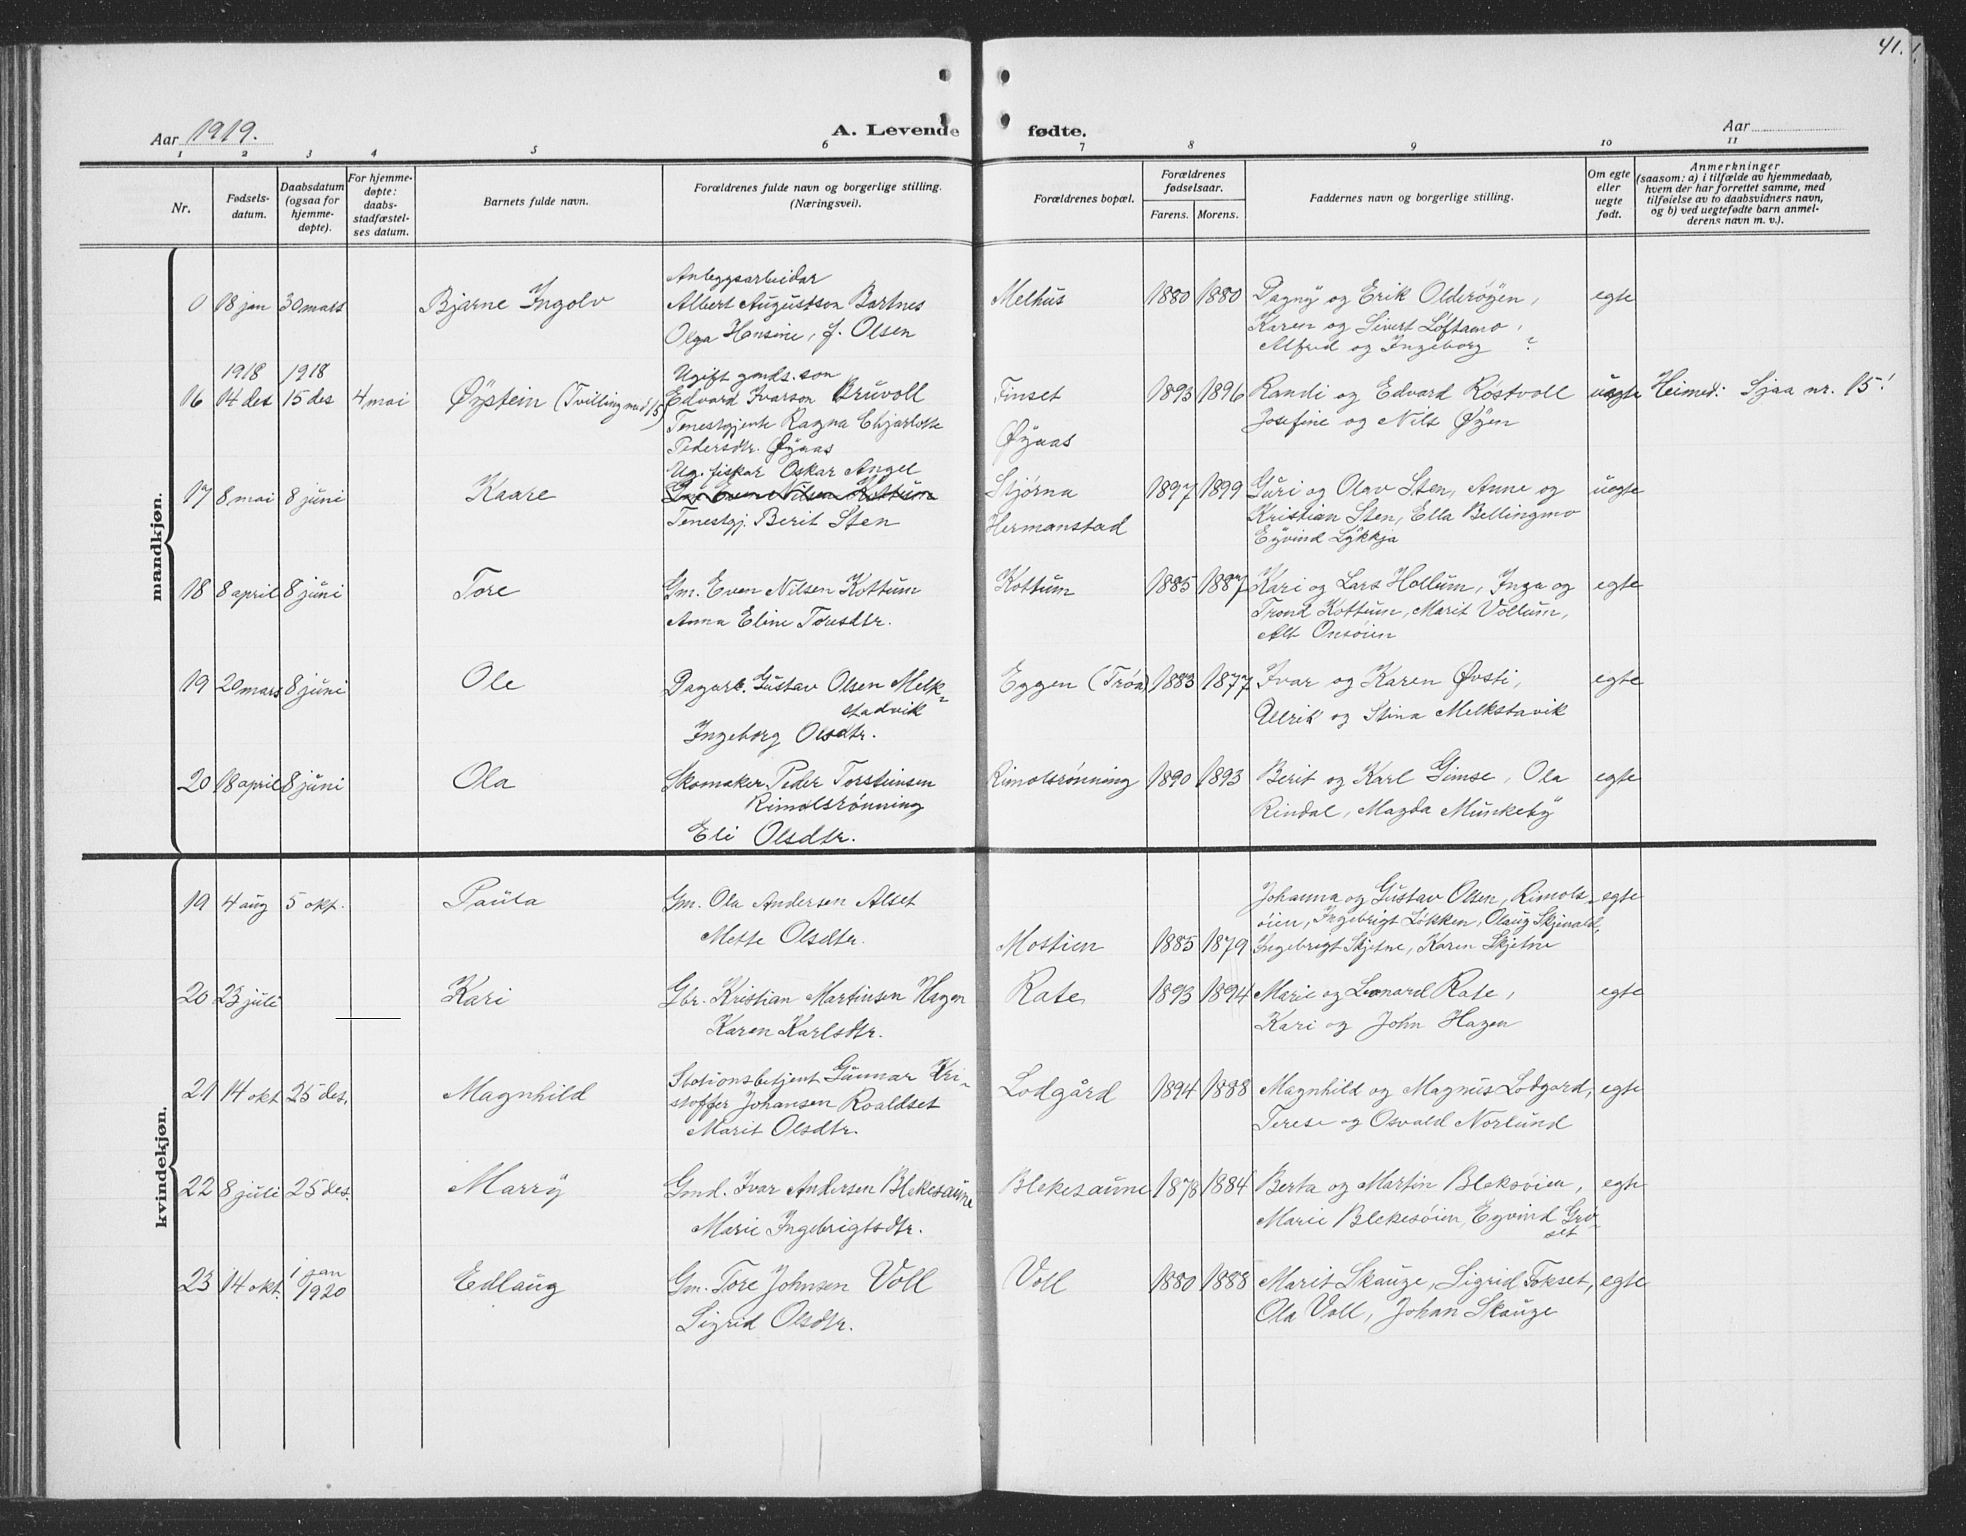 41.
Aar 1919.
A. Levende fødte.
Aar
1 2 3 4 5 6 7 8 9 10 11
Nr.
Fødsels-
datum.
Daabsdatum
(ogsaa for
hjemme-
døpte).
For hjemme-
døpte:
daabs-
stadfæstel-
ses datum.
Barnets fulde navn.
Forældrenes fulde navn og borgerlige stilling.
(Næringsvei).
Forældrenes bopæl.
Forældrenes
fødselsaar.
Farens. Morens.
Faddernes navn og borgerlige stilling.
Om egte
eller
uegte
født.
Anmerkninger
(saasom: a) i tilfælde av hjemmedaab,
hvem der har forrettet samme, med
tilføielse av to daabsvidners navn,
og b) ved uegtefødte barn anmel-
derens navn m. v.).
mandkjøn.
Anleggsarbeidar
0 18 jan 30 mars Bjarne Ingolv Albert Augustson Bartnes Melhus 1880 1880 Dagny og Erik Olderøyen, egte
Olga Hansine, f. Olsen Karen og Sivert Løftamo,
Alfred og Ingeborg ?
1918 1918 Ugift gmds. son
16 14 des 15 des 4 mai Øystein (Tvilling med 15) Edvard Ivarson Bruvoll Tinset 1893 1896 Randi og Edvard Rostvoll uegte Heimed: Sjaa nr. 15!
Tenestgjente Ragna Charlotte Josefine og Nils Øyen
Pedersdtr. Øyaas Øyaas
Ug. fiskar Oskar Angel
17 8 mai 8 juni Kaare Gm. Even Nilsen Kottum Stjørna 1897 1899 Guri og Olav Sten, Anne og uegte
Tenestgj. Berit Sten Hermanstad Kristian Sten, Ella Bellingmo
Eyvind Lykkja
18 8 april 8 juni Tore Gm. Even Nilsen Kottum Kottum 1885 1887 Kari og Lars Hollum, Inga og egte
Anna Eline Toresdtr. Trond Kottum, Marit Vollum,
Alt Onsøien
19 20 mars 8 juni Ole Dagarb. Gustav Olsen Melk- Eggen (Trøa) 1883 1877 Ivar og Karen Øvsti, egte
stadvik Ullrik og Stina Melkstavik
Ingeborg Olsdtr.
20 18 april 8 juni Ola Skomaker Peder Torsteinsen Rimolsrønning 1890 1893 Berit og Karl Gimse, Ola egte
Rimolsrønning Rindal, Magda Munkeby
Eli Olsdtr.
kvindekjøn.
19 4 aug 5 okt. Paula Gm. Ola Andersen Alset Johanna og Gustav Olsen, Rimols- egte
øien, Ingebrigt Løkken, Olaug Skjerald,
Mette Olsdtr. Mostien 1885 1879 Ingebrigt Skjetne, Karen Skjetne
20 23 juli Kari Gbr. Kristian Martinsen Hagen Rate 1893 1894 Marie og Leonard Rate, egte
Karen Karlsdtr. Kari og John Hagen
21 14 okt 25 des. Magnhild Stationsbetjent Gunnar Kri- Lodgård 1894 1888 Magnhild og Magnus Lodgard, egte
stoffer Johansen Roaldset Terese og Osvald Norlund
Marit Olsdtr.
22 8 juli 25 des. Marry Gmd. Ivar Andersen Blekesaune Blekesaune 1878 1884 Berta og Martin Bleksøien, egte
Marie Ingebrigtsdtr. Marie Blekesøien, Eyvind Grø-
set
23 14 okt. 1 jan 1920 Edlaug Gm. Tore Johnsen Voll Voll 1880 1888 Marit Skauge, Sigrid Fokset, egte
Sigrid Olsdtr. Ola Voll, Johan Skauge